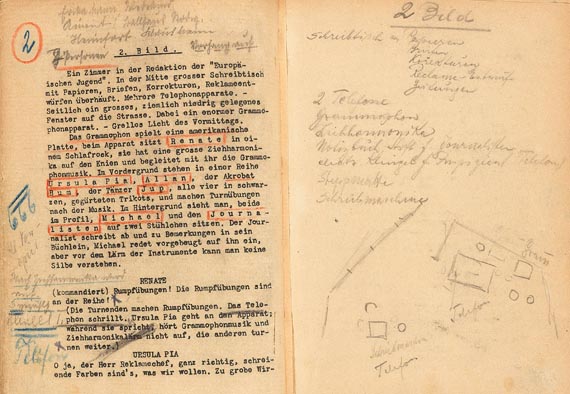 2
7 Personen
2. Bild.
Vorhang auf
Ein Zimmer in der Redaktion der "Europä-
ischen Jugend". In der Mitte grosser Schreibtisch
mit Papieren, Briefen, Korrekturen, Reklameent-
würfen überhäuft. Mehrere Telephonapparate.
Seitlich ein grosses, ziemlich niedrig gelegenes
Fenster auf die Strasse. Dabei ein enormer Grammo-
phonapparat. - Grelles Licht des Vormittags.
Das Grammophon spielt eine amerikanische
Platte, beim Apparat sitzt Renate in ei-
nem Schlafrock, sie hat eine grosse Ziehharmoni-
ka auf den Knien und begleitet mit ihr die Grammo-
phonmusik. Im Vordergrund stehen in einer Reihe
Ursula Pia, Allan, der Akrobat
Bum, der Tänzer Jup, alle vier in schwar-
zen, gegürteten Trikots, und machen Turnübungen
nach der Musik. Im Hintergrund sieht man, beide
im Profil, Michael und den Journa-
listen auf zwei Stühlchen sitzen. Der Jour-
nalist schreibt ab und zu Bemerkungen in sein
Büchlein, Michael redet vorgebeugt auf ihn ein,
aber vor dem Lärm der Instrumente kann man keine
Silbe verstehen.
RENATE
(kommandiert) Rumpfübungen! Die Rumpfübungen sind
an der Reihe!
(Die Turnenden machen Rumpfübungen. Das Tele-
phon schrillt. Ursula Pia geht an den Apparat;
während sie spricht, hört Grammophonmusik und
Ziehharmonikalärm nicht auf, die anderen tur-
nen weiter.)
URSULA PIA
O ja, der Herr Reklamechef, ganz richtig, schrei-
ende Farben sind's, was wir wollen. Zu grobe Wir-
Telefon
2 Bild
Schreibtisch m. Papieren
Briefen
Korrekturen
Reklame Entwürfe
Zeitungen
2 Telefone
Grammophon
Ziehharmonika
Notizbuch
Schreibmaschine
Telefon
Telefon